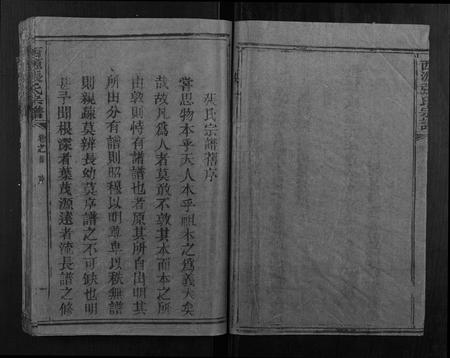 西源張氏宗譜
張氏宗譜舊序
嘗思物本乎天人本乎祖本之為義大矣
哉故凡為人者莫敢不敦其本而本之所
由敦則恃有譜譜也者原其所自出明其
所由分有譜則昭穆以明尊卑以秩無譜
則親疎莫辨長幼莫序譜之不可缺也明
甚予聞根深者葉茂源遠者流長譜之修
西源張氏宗譜
卷之首 序